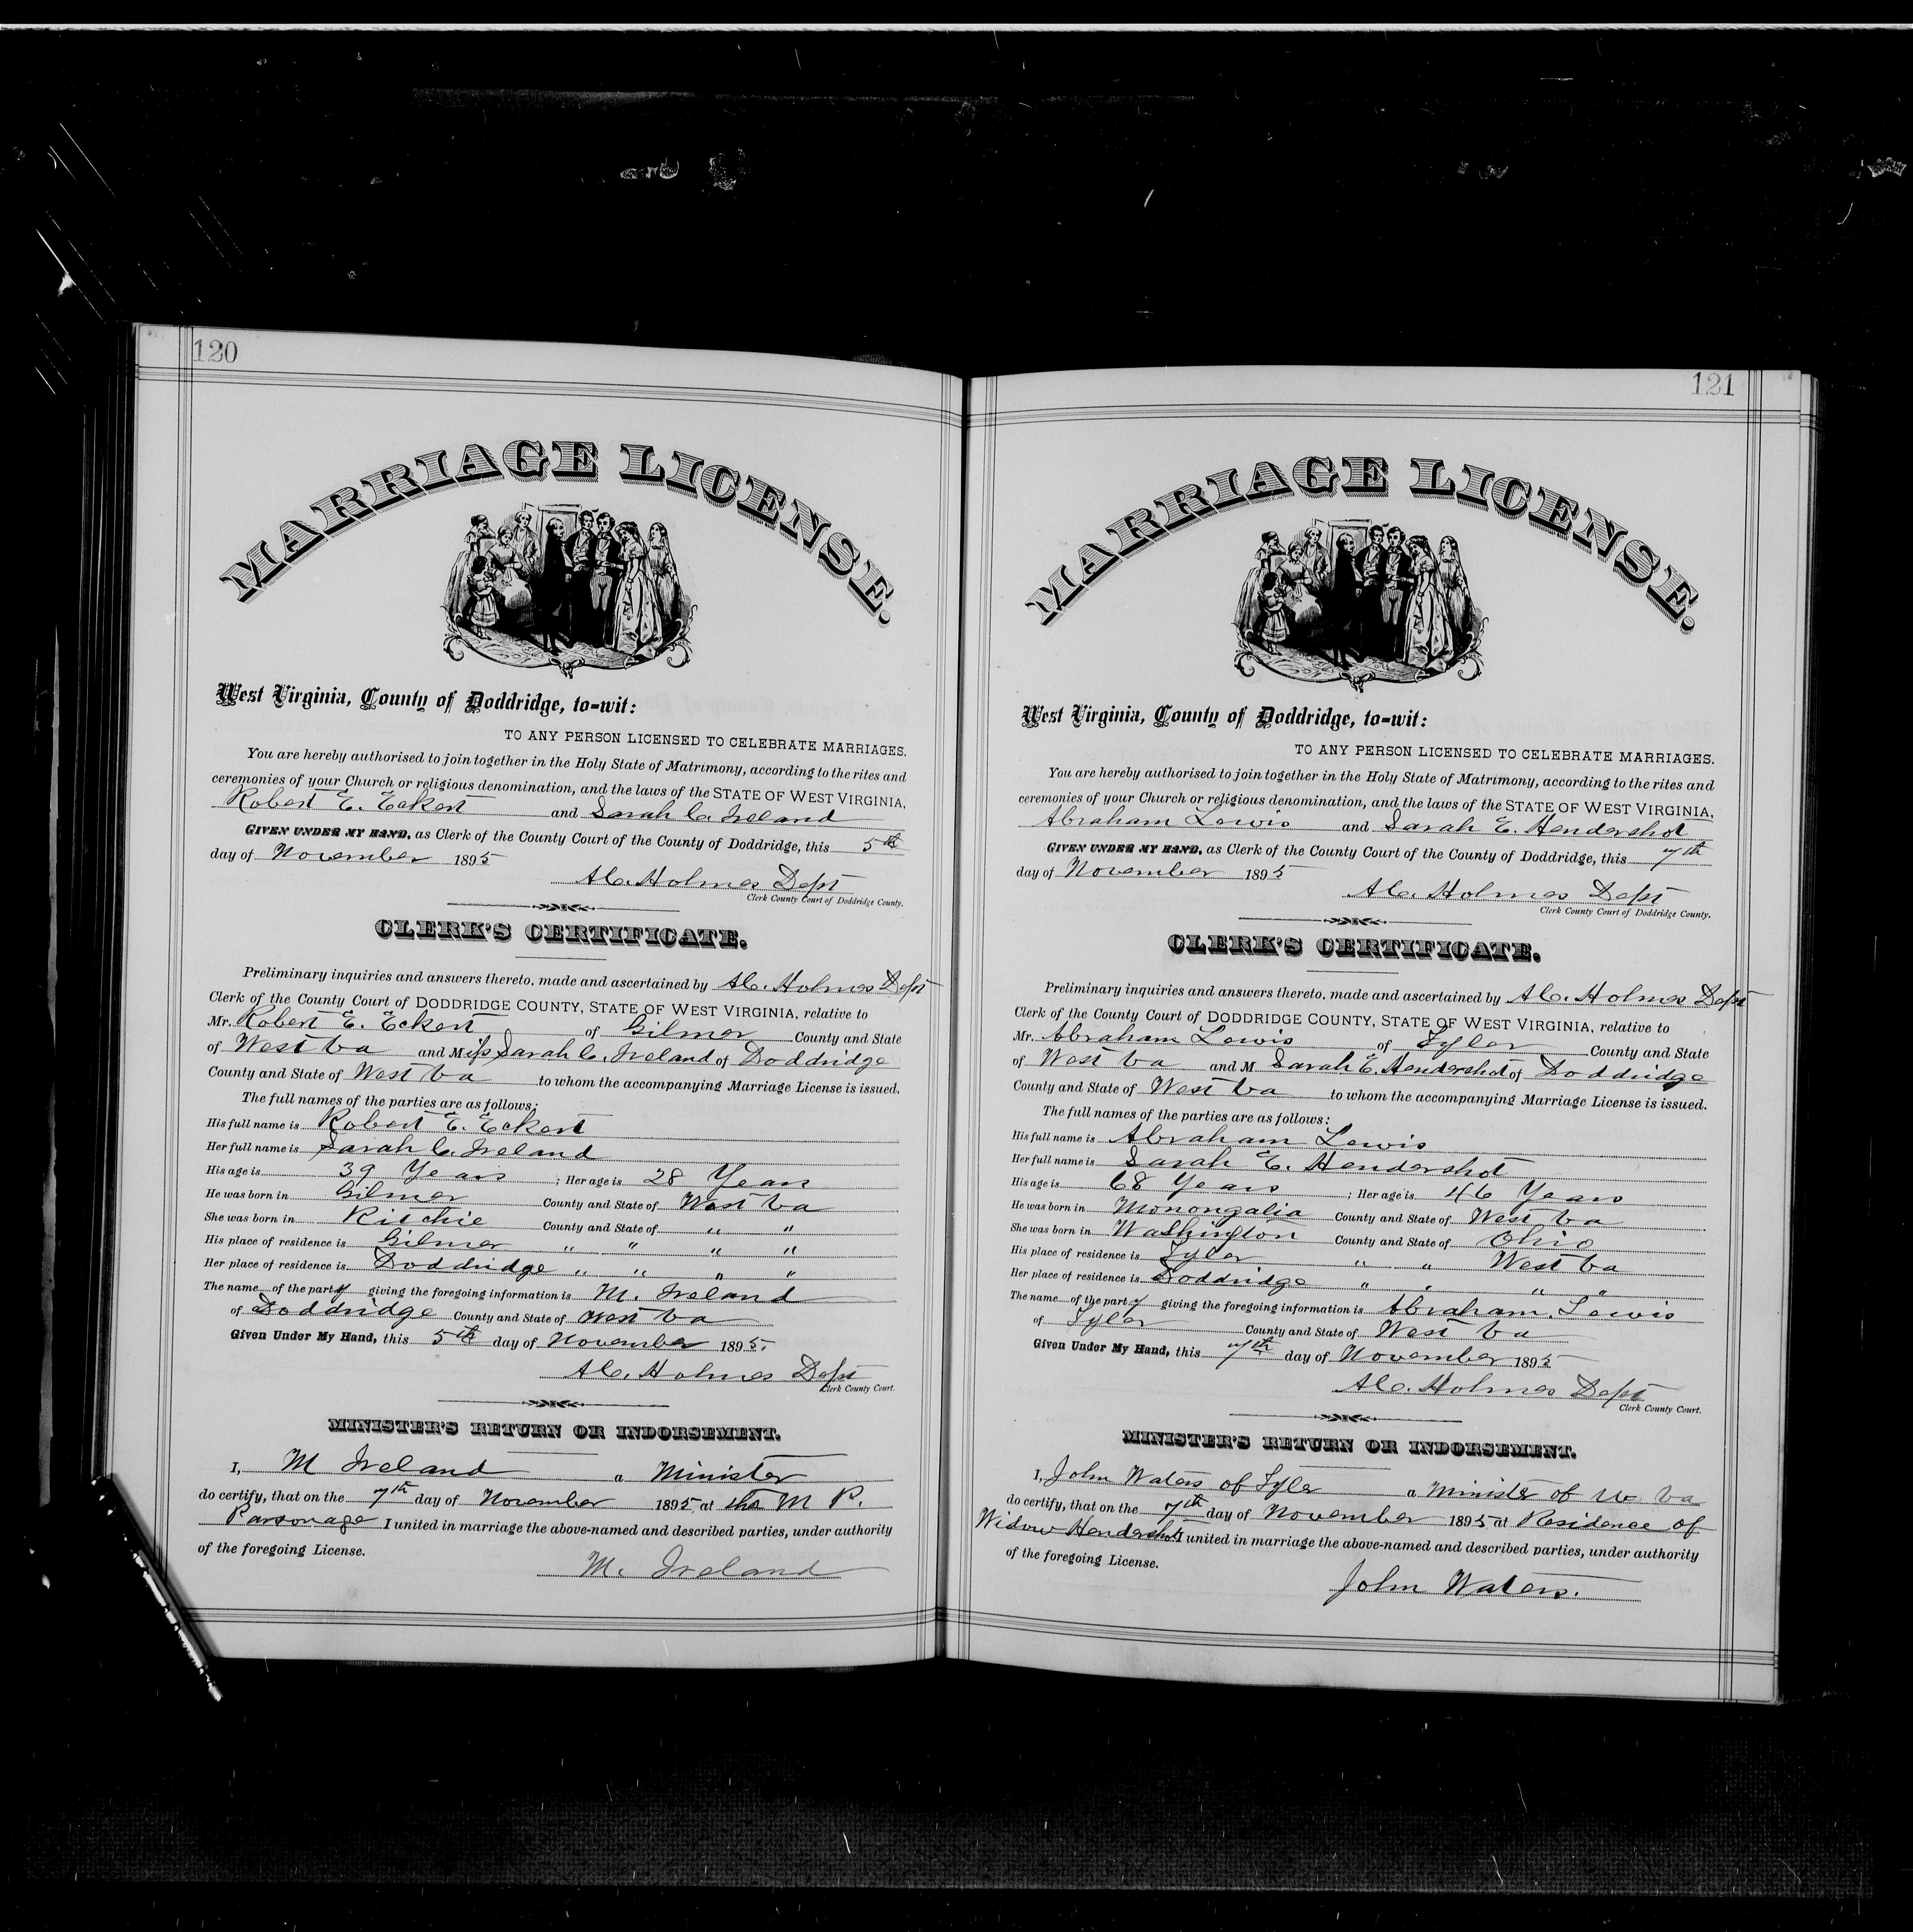 120
MARRIAGE LICENSE.
West Virginia, County of Doddridge, to=wit:
TO ANY PERSON LICENSED TO CELEBRATE MARRIAGES.
You are hereby authorised to join together in the Holy State of Matrimony, according to the rites and
ceremonies of your Church or religious denomination, and the laws of the STATE OF WEST VIRGINIA,
Robert E. Eckert and Sarah C. Ireland
GIVEN UNDER MY HAND, as Clerk of the County Court of the County of Doddridge, this 5th
day of November 1895
A.C. Holmes Dept
Clerk County Court of Doddridge County.
CLERK'S CERTIFICATE.
Preliminary inquiries and answers thereto, made and ascertained by A.C. Holmes Dept
Clerk of the County Court of DODDRIDGE COUNTY, STATE OF WEST VIRGINIA, relative to
Mr. Robert E. Eckert of Gilmer County and State
of West Va and Miss Sarah C. Ireland of Doddridge
County and State of West Va to whom the accompanying Marriage License is issued.
The full names of the parties are as follows:
His full name is Robert E. Eckert
Her full name is Sarah C. Ireland
His age is 39 Years ; Her age is 28 Years
He was born in Gilmer County and State of West Va
She was born in Ritchie County and State of " "
His place of residence is Gilmer " " " "
Her place of residence is Doddridge " " " "
The name of the party giving the foregoing information is M. Ireland
of Doddridge County and State of West Va
Given Under My Hand, this 5th day of November 1895.
A.C. Holmes Dept
Clerk County Court.
MINISTER'S RETURN OR INDORSEMENT.
I, M Ireland a Minister
do certify, that on the 7th day of November 1895 at the M P.
Parsonage I united in marriage the above-named and described parties, under authority
of the foregoing License.
M. Ireland
121
MARRIAGE LICENSE.
West Virginia, County of Doddridge, to=wit:
TO ANY PERSON LICENSED TO CELEBRATE MARRIAGES.
You are hereby authorised to join together in the Holy State of Matrimony, according to the rites and
ceremonies of your Church or religious denomination, and the laws of the STATE OF WEST VIRGINIA,
Abraham Lewis and Sarah E. Hendershot
GIVEN UNDER MY HAND, as Clerk of the County Court of the County of Doddridge, this 7th
day of November 1895
A.C. Holmes Dept
Clerk County Court of Doddridge County.
CLERK'S CERTIFICATE.
Preliminary inquiries and answers thereto, made and ascertained by A.C. Holmes Dept
Clerk of the County Court of DODDRIDGE COUNTY, STATE OF WEST VIRGINIA, relative to
Mr. Abraham Lewis of Tyler County and State
of West Va and M Sarah E. Hendershot of Doddridge
County and State of West Va to whom the accompanying Marriage License is issued.
The full names of the parties are as follows:
His full name is Abraham Lewis
Her full name is Sarah E. Hendershot
His age is 68 Years ; Her age is 46 Years
He was born in Monongalia County and State of West Va
She was born in Washington County and State of Ohio
His place of residence is Tyler " " West Va
Her place of residence is Doddridge " " " "
The name of the party giving the foregoing information is Abraham Lewis
of Tyler County and State of West Va
Given Under My Hand, this 7th day of November 1895
A.C. Holmes Dept
Clerk County Court.
MINISTER'S RETURN OR INDORSEMENT.
I, John Waters of Tyler a Minister of W Va
do certify, that on the 7th day of November 1895 at Residence of
Widow Hendershot I united in marriage the above-named and described parties, under authority
of the foregoing License.
John Waters.